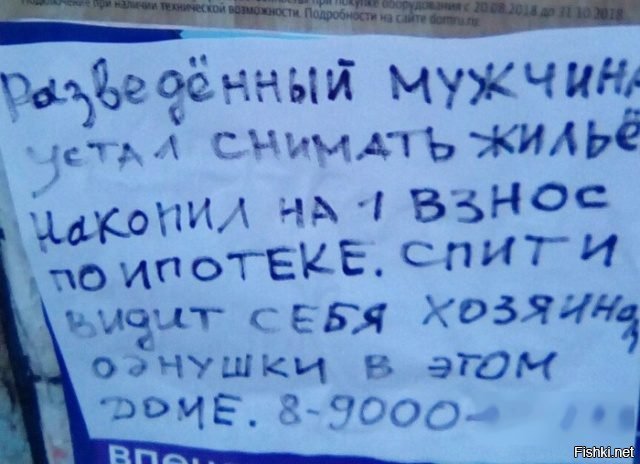 Подключение при наличии технической возможности. Подробности на сайте domru.ru.
при покупке оборудования с 20.08.2018 до 31.10.2018
Разведённый мужчина
устал снимать жильё
накопил на 1 взнос
по ипотеке. Спит и
видит себя хозяином
однушки в этом
доме. 8-9000-
Fishki.net